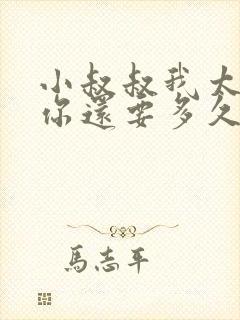 小叔叔我太
你還要多久
馬志平